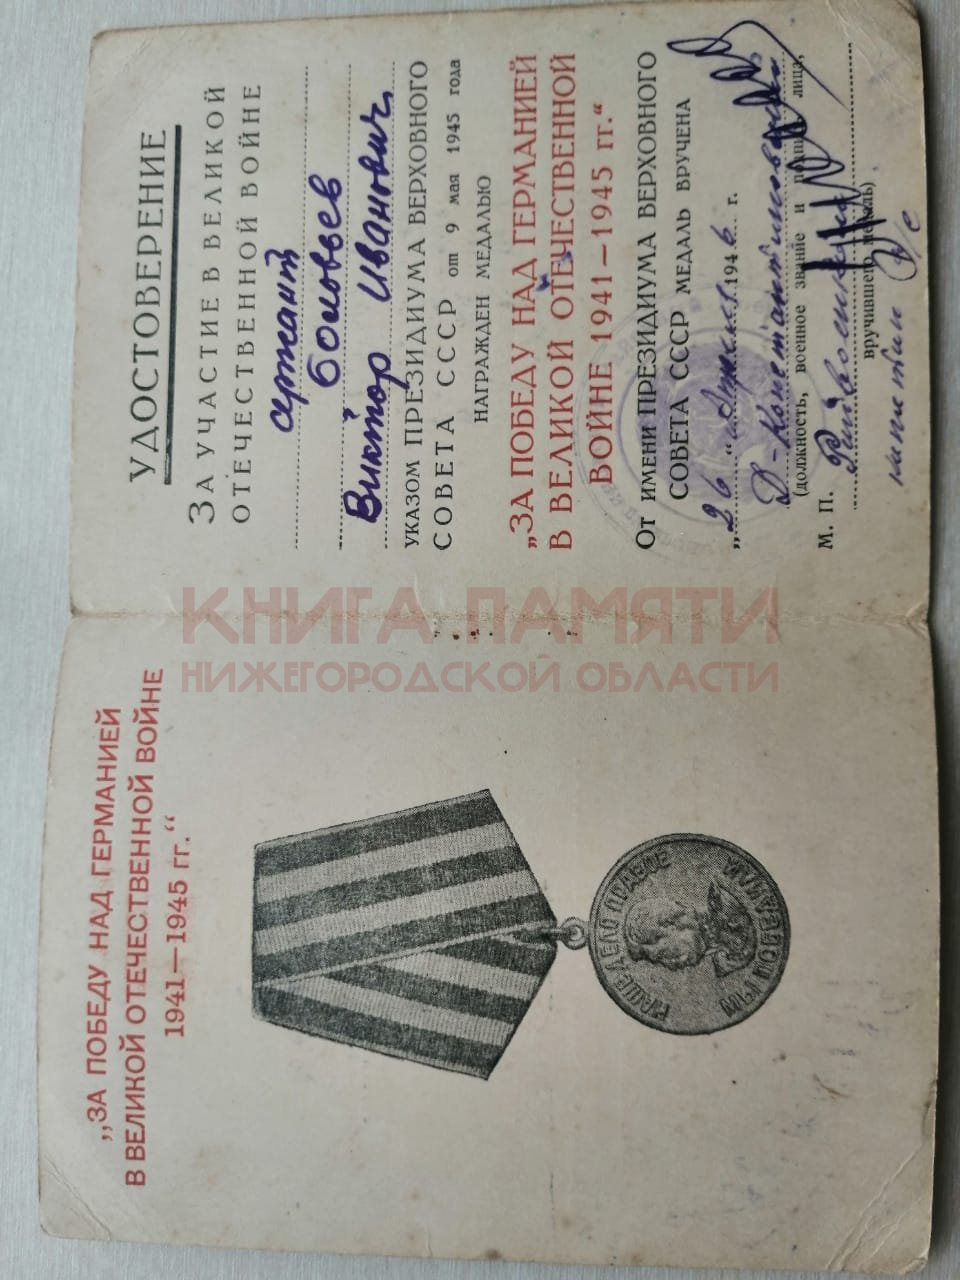 „ЗА ПОБЕДУ НАД ГЕРМАНИЕЙ
В ВЕЛИКОЙ ОТЕЧЕСТВЕННОЙ ВОЙНЕ
1941—1945 гг.“
НАШЕ ДЕЛО ПРАВОЕ
МЫ ПОБЕДИЛИ
УДОСТОВЕРЕНИЕ
ЗА УЧАСТИЕ В ВЕЛИКОЙ
ОТЕЧЕСТВЕННОЙ ВОЙНЕ
сержант
Соловьев
Виктор Иванович
УКАЗОМ ПРЕЗИДИУМА ВЕРХОВНОГО
СОВЕТА СССР от 9 мая 1945 года
НАГРАЖДЕН МЕДАЛЬЮ
„ЗА ПОБЕДУ НАД ГЕРМАНИЕЙ
В ВЕЛИКОЙ ОТЕЧЕСТВЕННОЙ
ВОЙНЕ 1941—1945 гг.“
От ИМЕНИ ПРЕЗИДИУМА ВЕРХОВНОГО
СОВЕТА СССР МЕДАЛЬ ВРУЧЕНА
„26“ Апреля 1946 г.
Д-Константиновский
(должность, военное звание и подпись лица,
М. П. Райвоенком
вручившего медаль)
КНИГА ПАМЯТИ
НИЖЕГОРОДСКОЙ ОБЛАСТИ